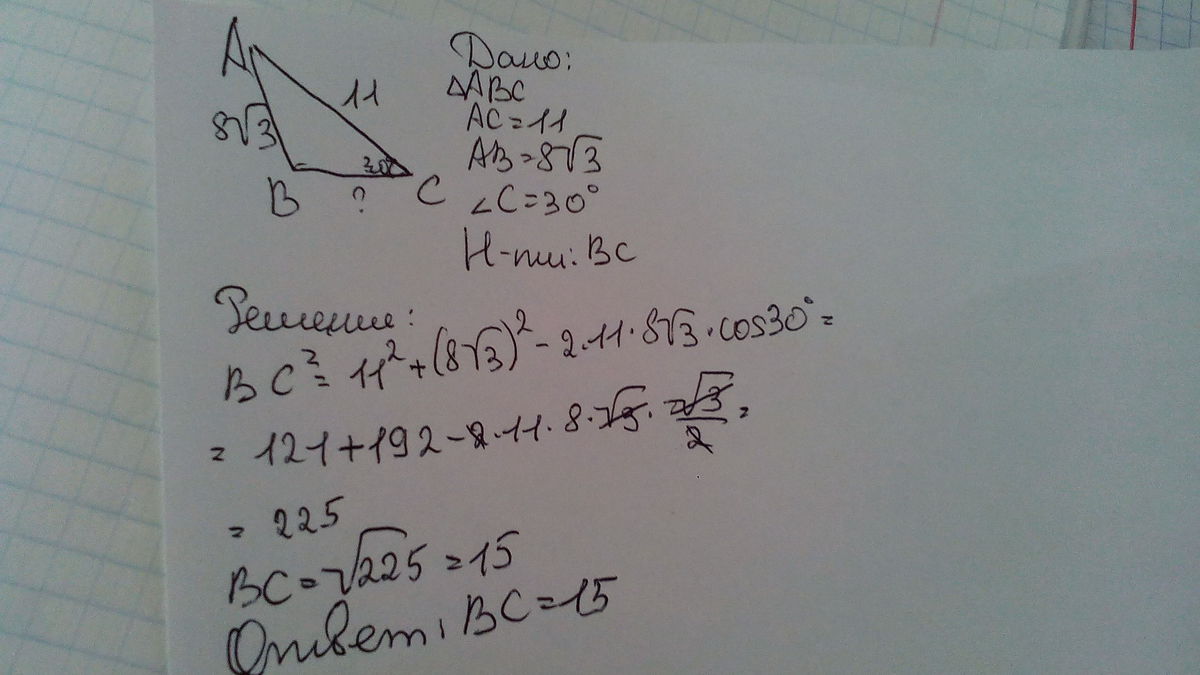 A
11
8√3
30°
B
?
C
Дано:
△ABC
AC=11
AB=8√3
∠C=30°
Н-ти: BC
Решение:
BC²= 11²+(8√3)²-2·11·8√3·cos30°=
= 121+192-2·11·8·√3·√3/2=
= 225
BC=√225=15
Ответ: BC=15